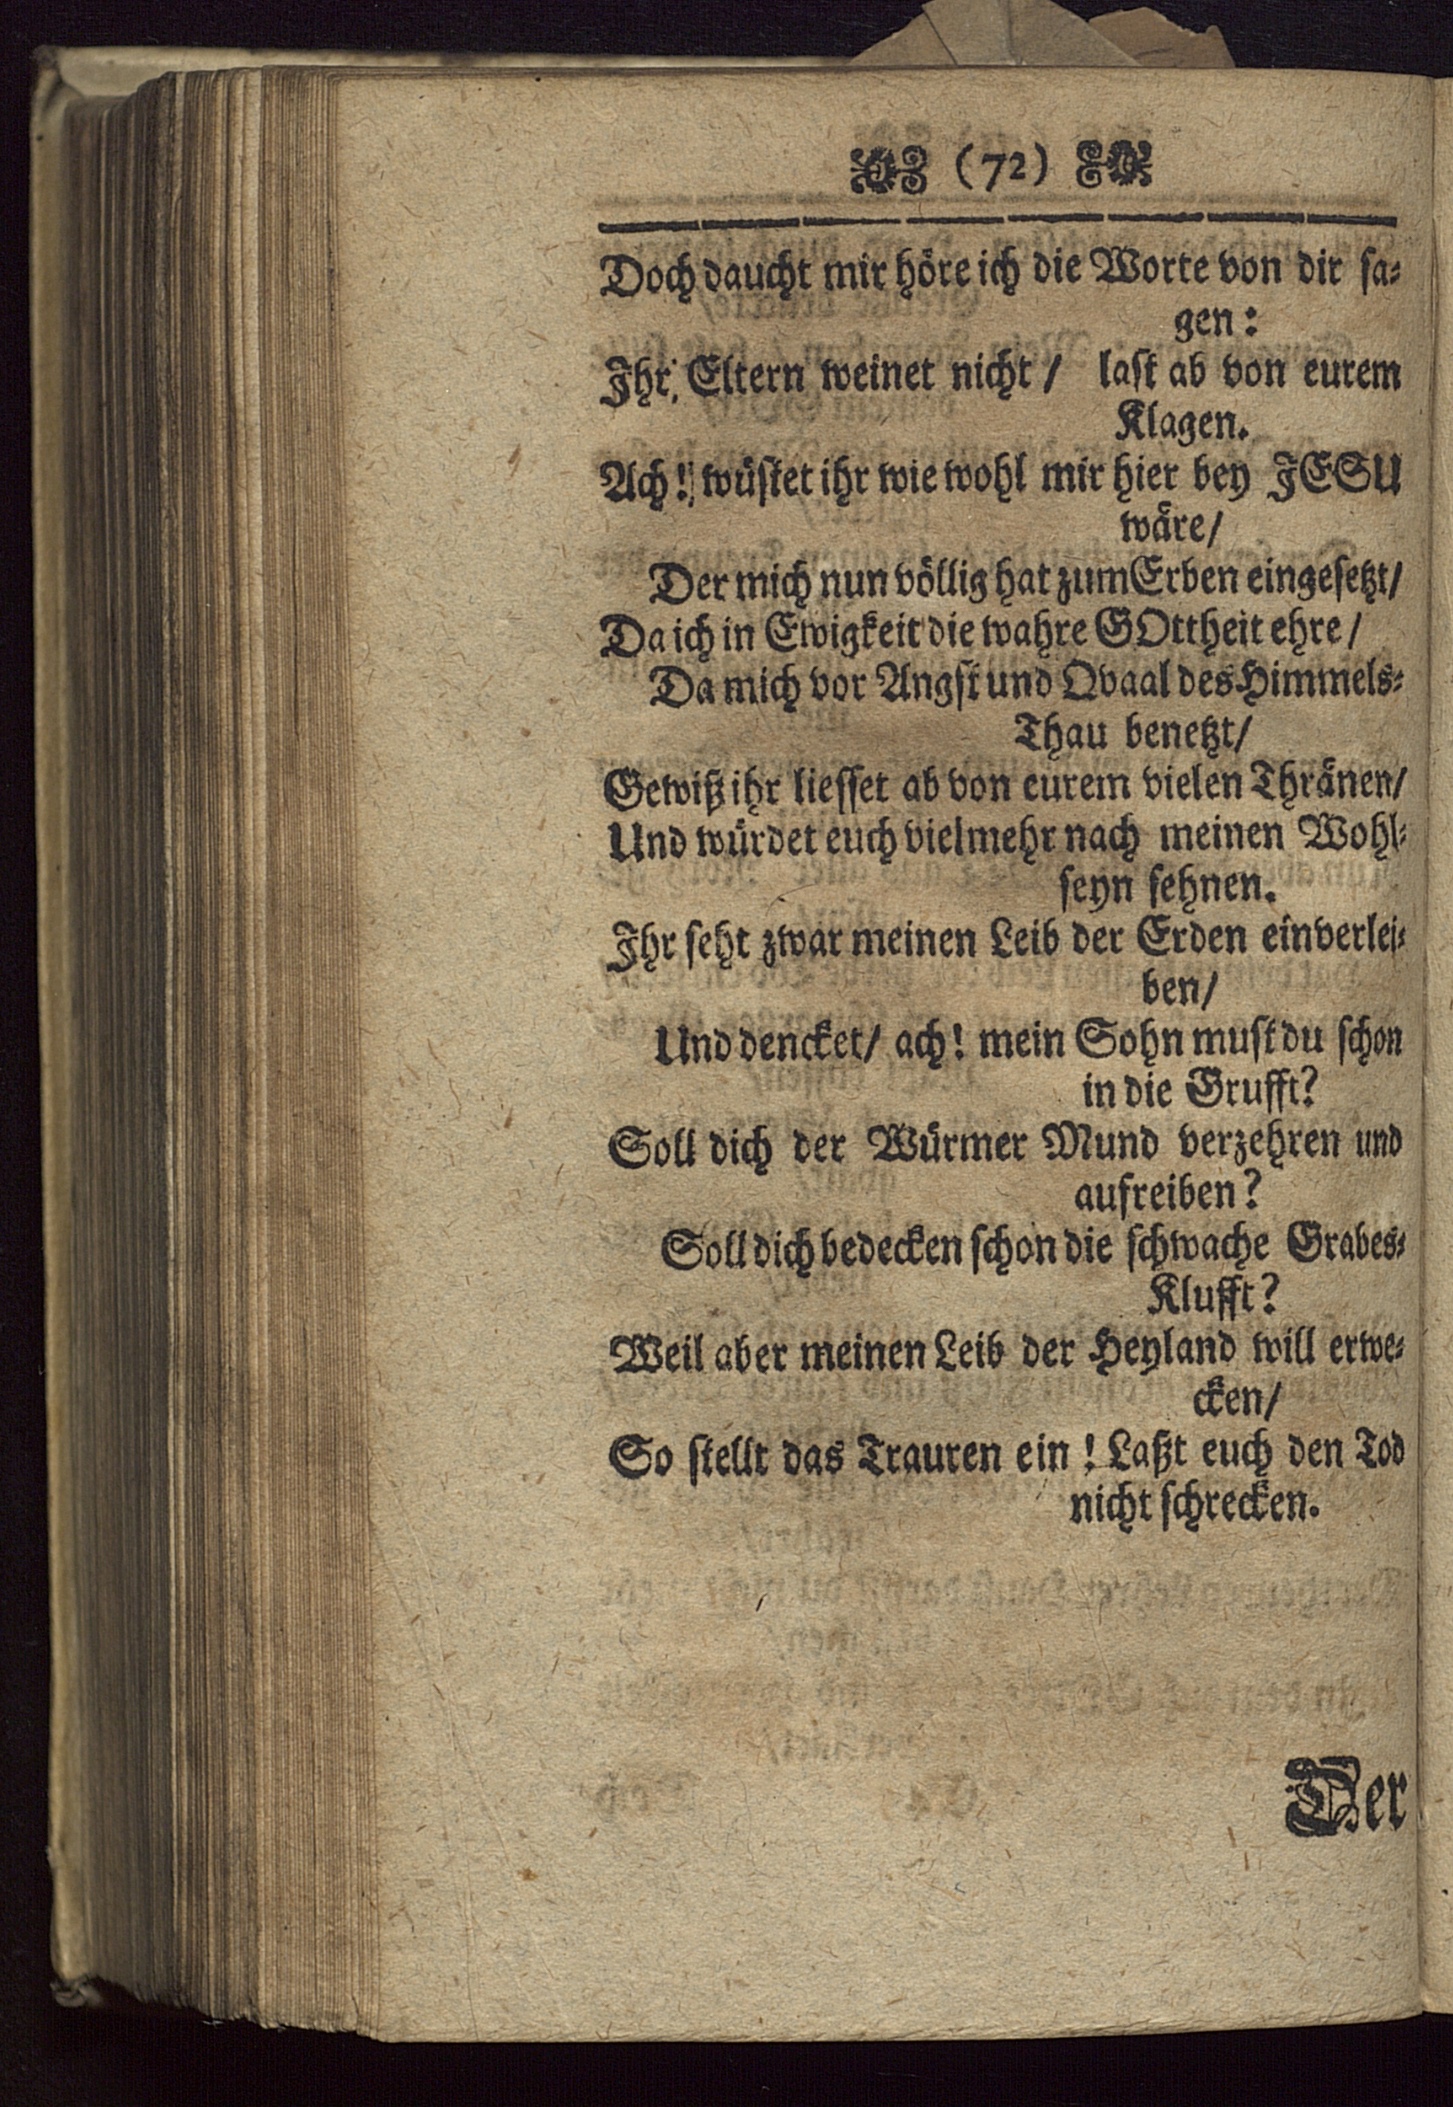 (72)
Doch daucht mir höre ich die Worte von dir sa-
gen:
Ihr, Eltern weinet nicht / last ab von eurem
Klagen.
Ach! wüstet ihr wie wohl mir hier bey JESU
wäre/
Der mich nun völlig hat zum Erben eingesetzt/
Da ich in Ewigkeit die wahre GOttheit ehre/
Da mich vor Angst und Qvaal des Himmels-
Thau benetzt/
Gewiß ihr liesset ab von eurem vielen Thränen/
Und würdet euch vielmehr nach meinen Wohl-
seyn sehnen.
Ihr seht zwar meinen Leib der Erden einverlei-
ben/
Und dencket/ ach! mein Sohn must du schon
in die Grufft?
Soll dich der Würmer Mund verzehren und
aufreiben?
Soll dich bedecken schon die schwache Grabes-
Klufft?
Weil aber meinen Leib der Heyland will erwe-
cken/
So stellt das Trauren ein! Laßt euch den Tod
nicht schrecken.
Der